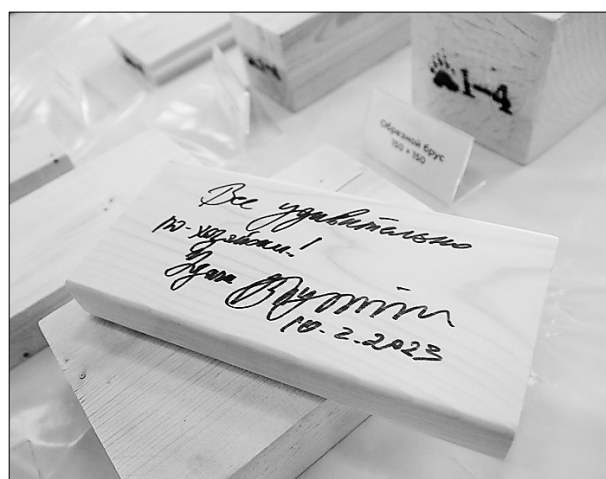 1-4
Обрезной брус
150 × 150
Все удивительно
по-хозяйски!
10.2.2023